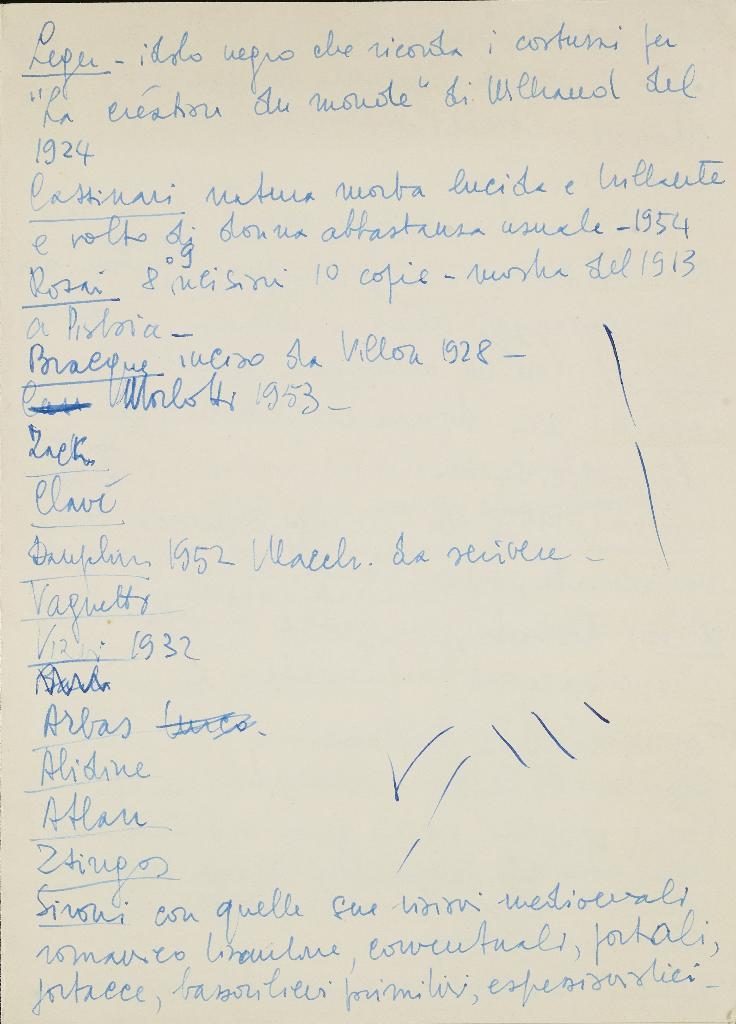 Leger - idolo negro che ricorda i costumi per
"La création du monde" di Milhaud del
1924
Cassinari natura morta lucida e brillante
e volto di donna abbastanza usuale - 1954
Rosai 8 o 9 incisioni 10 copie - mostra del 1913
a Pistoia -
Braque inciso da Villon 1928 -
Morlotti 1953 -
Zack
Clavé
Dauphin 1952 Macch. da scrivere -
Vagnetti
Viviani 1932
Arbas
Alidine
Atlan
Ztingos
Sironi con quelle sue visioni medioevali
romanico bizantine, conventuali, portali,
portacce, bassorilievi primitivi, espressionistici -